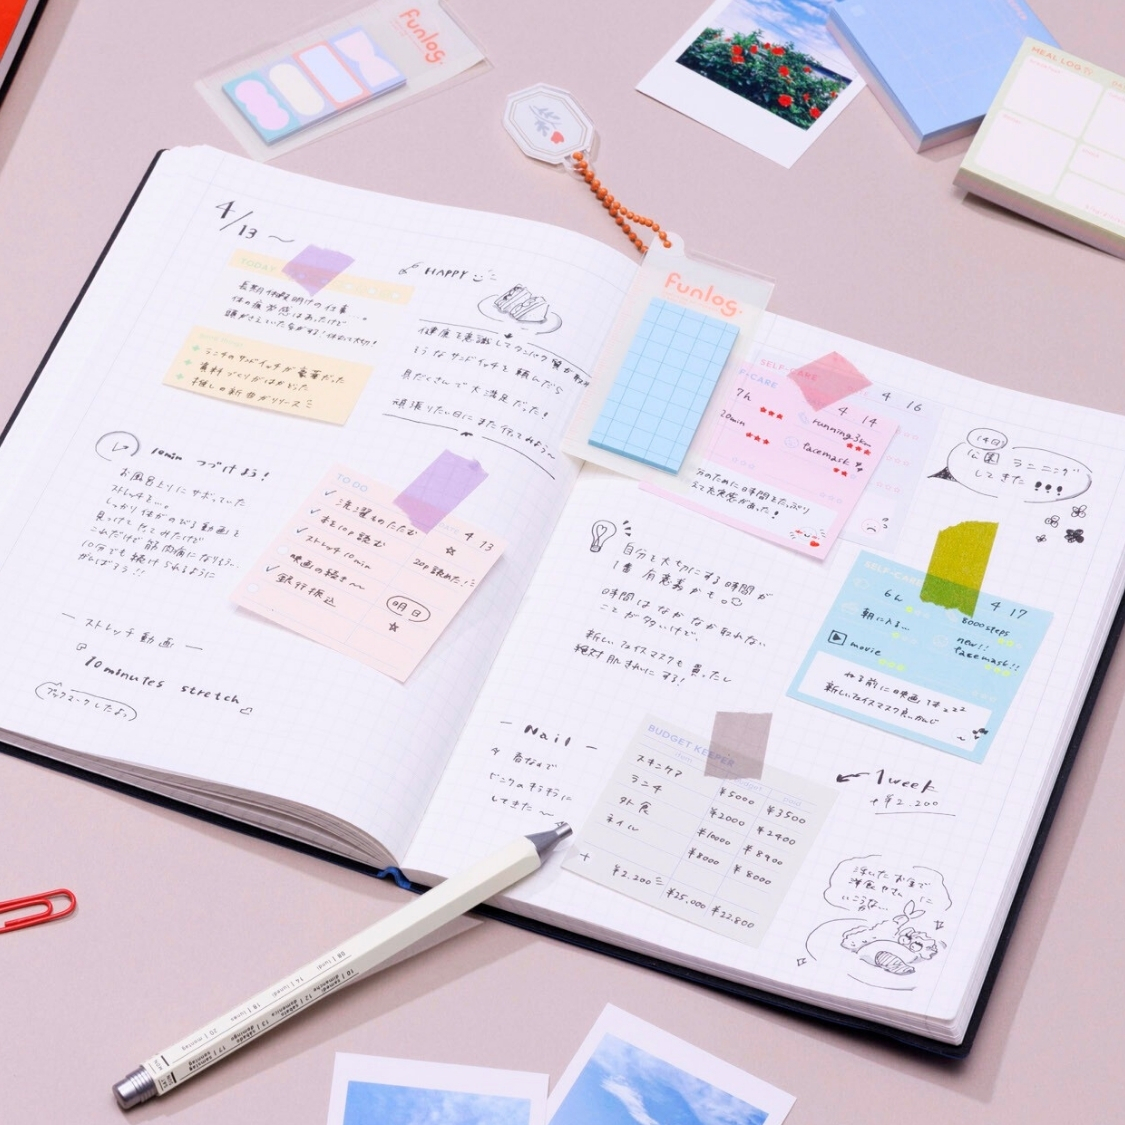 funlog.
MEAL LOG
4/13 〜
TODAY
長期休暇明けの仕事…。
体の疲労感はあったけど
頭がさえていた気がする！休むの大切！
ランチのサンドイッチが豪華だった
資料づくりがはかどった
推しの新曲がリリース
HAPPY
健康を意識してタンパク質が取れ
そうなサンドイッチを頼んだら
具だくさんで大満足だった！
頑張りたい日にまた行ってみよう〜
10min つづけよう！
お風呂上りにサボっていた
ストレッチを…。
しっかり体がのびる動画を
見つけてやってみたけど
これだけで筋肉痛になりそう。
10分でも続けられるように
がんばろう!!
TO DO
4 13
洗濯ものたたむ
本を10p読む
20p読めた！
ストレッチ10min
映画の続き〜
銀行振込
明日
― ストレッチ動画 ―
『10minutes stretch』
ブックマークしたよっ
funlog.
SELF-CARE
4 16
F-CARE
4 14
7h
running3km
20min
facemask
分のために時間をたっぷり
えて充実感があった！
14日
公園ランニング
してきた!!!
自分を大切にする時間が
1番有意義かも。
時間はなかなか取れない
ことが多いけど、
新しいフェイスマスクも買ったし
絶対肌きれいにする！
SELF-CARE
4 17
6h
8000steps
朝に入る…
new!!
facemask!!
movie
ねる前に映画1本
新しいフェイスマスク良いかんじ
― Nail ―
春なので
ピンクのキラキラに
してきた〜
BUDGET KEEPER
スキンケア ¥5000 ¥3500
ランチ ¥2000 ¥2400
外食 ¥10000 ¥8900
ネイル ¥8000 ¥8000
+ ¥2.200 ¥25.000 ¥22.800
1week
+¥2.200
浮いたお金で
洋食やさんに
いこうかな…